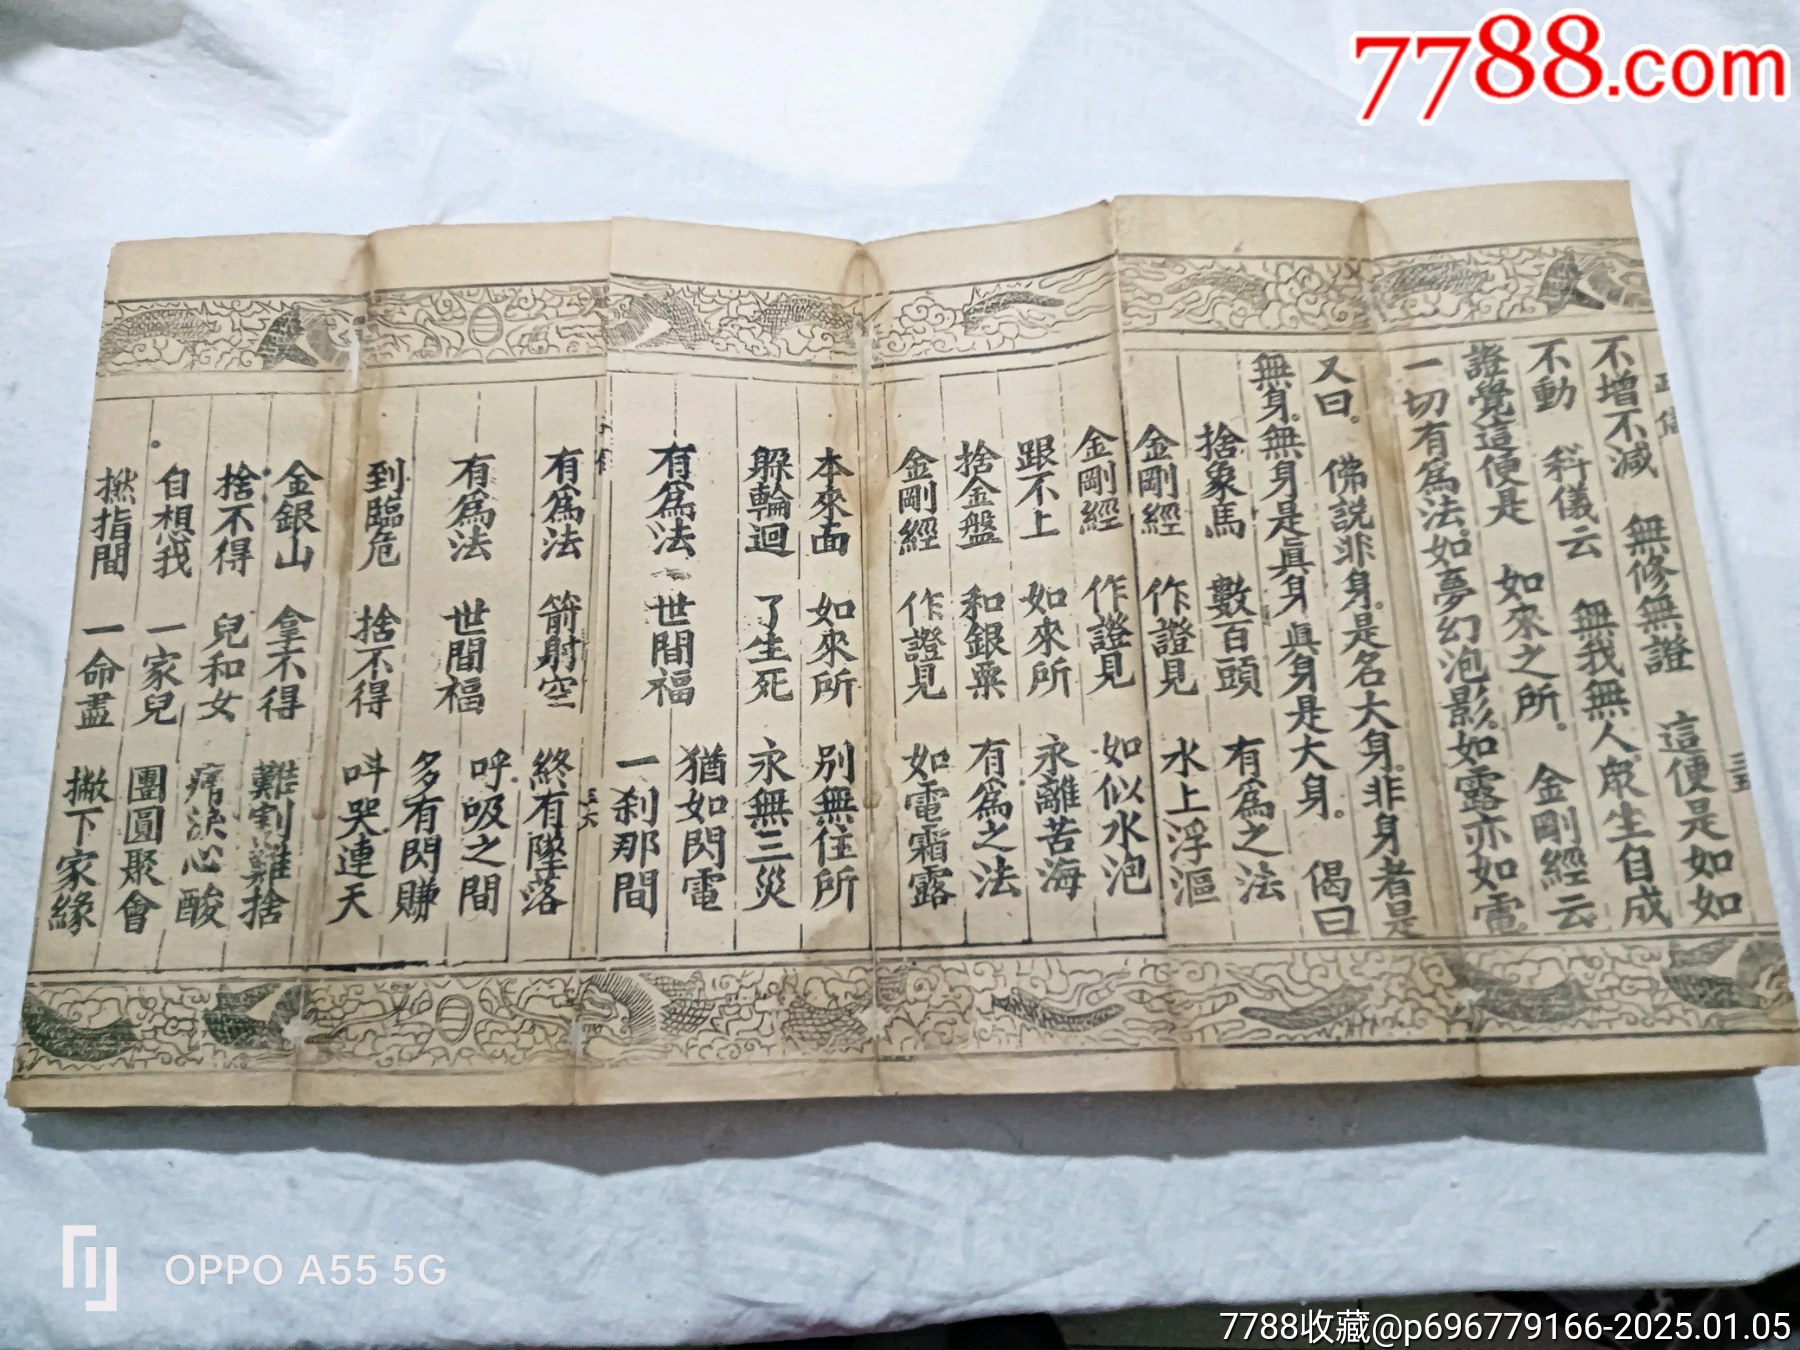 7788.com
不增不減 無修無證 這便是如如
不動 科儀云 無我無人眾生自成
證覺這便是 如來之所。 金剛經云
一切有為法。如夢幻泡影。如露亦如電。
又曰。 佛說非身。是名大身。非身者是
無身。無身是真身真身是大身。 偈曰
捨象馬 數百頭 有為之法
金剛經 作證見 水上浮漚
金剛經 作證見 如似水泡
跟不上 如來所 永離苦海
捨金盤 和銀粟 有為之法
金剛經 作證見 如電霜露
本來面 如來所 別無住所
躲輪迴 了生死 永無三災
有為法 世間福 猶如閃電
一刹那間
三六
有為法 箭射空 終有墜落
有為法 世間福 呼吸之間
多有閃賺
到臨危 捨不得 呌哭連天
金銀山 拿不得 難割難捨
捨不得 兒和女 痛淚心酸
自想我 一家兒 團圓聚會
撚指間 一命盡 撇下家緣
OPPO A55 5G
7788收藏@p696779166-2025.01.05